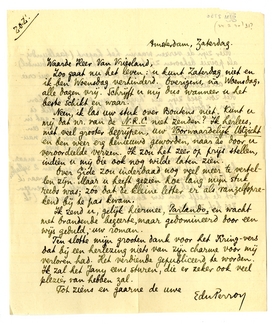 Amsterdam, Zaterdag.
Waarde Heer Van Vriesland,
Zoo gaat nu het leven: u kunt Zaterdag niet en
ik ben Woensdag verhinderd. Overigens, na Woensdag,
alle dagen vrij. Schrijft u mij dus wanneer u het
beste schikt en waar.
Neen, ik las uw stuk over Boukens niet. Kunt u
mij dat nr. van de N.R.C. niet zenden? Ik herlees,
met veel groter begrijpen, uw Voorwaardelijk Uitzicht
en ben weer erg benieuwd geworden, waar ze door u
veroordeelde verzen. Ik zou het zeer op prijs stellen,
indien u mij die ook nog wilde laten zien.
Over Gide zou inderdaad nog veel meer te vertel-
len zijn. Maar u heeft gezien hoe lang mijn stuk
reeds was; zóó dat de kleine letter er als vanzelfspre-
kend bij te pas kwam.
Ik zend u, gelijk hiermee, Parlando, en wacht
met brandende uw roman.
Ten slotte mijn grooten dank voor het Kring-vers
dat bij een herlezing niets van zijn charme voor mij
verloren had. Het verdiende gepubliceerd te worden.
Ik zal het Jany eens sturen, die er zeker ook veel
plezier van hebben zal.
Tot ziens en gaarne de uwe
EduPerron